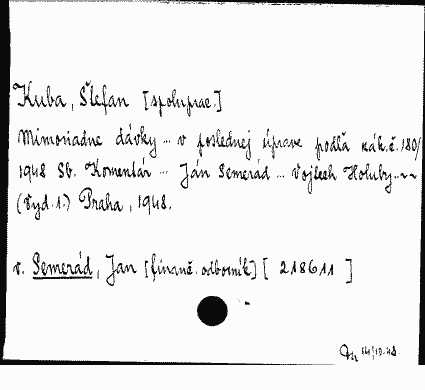 Kuba, Štefan [spoluprac.]
Mimoriadne dávky ... v poslednej úprave podľa zák.č. 180/
1948 Sb. Komentár ... Ján Semerád ... Vojtech Holuby...
(Vyd. 1.) Praha, 1948.
v. Semerád, Jan [finanč. odborník] [ 218611 ]
14/10.48.